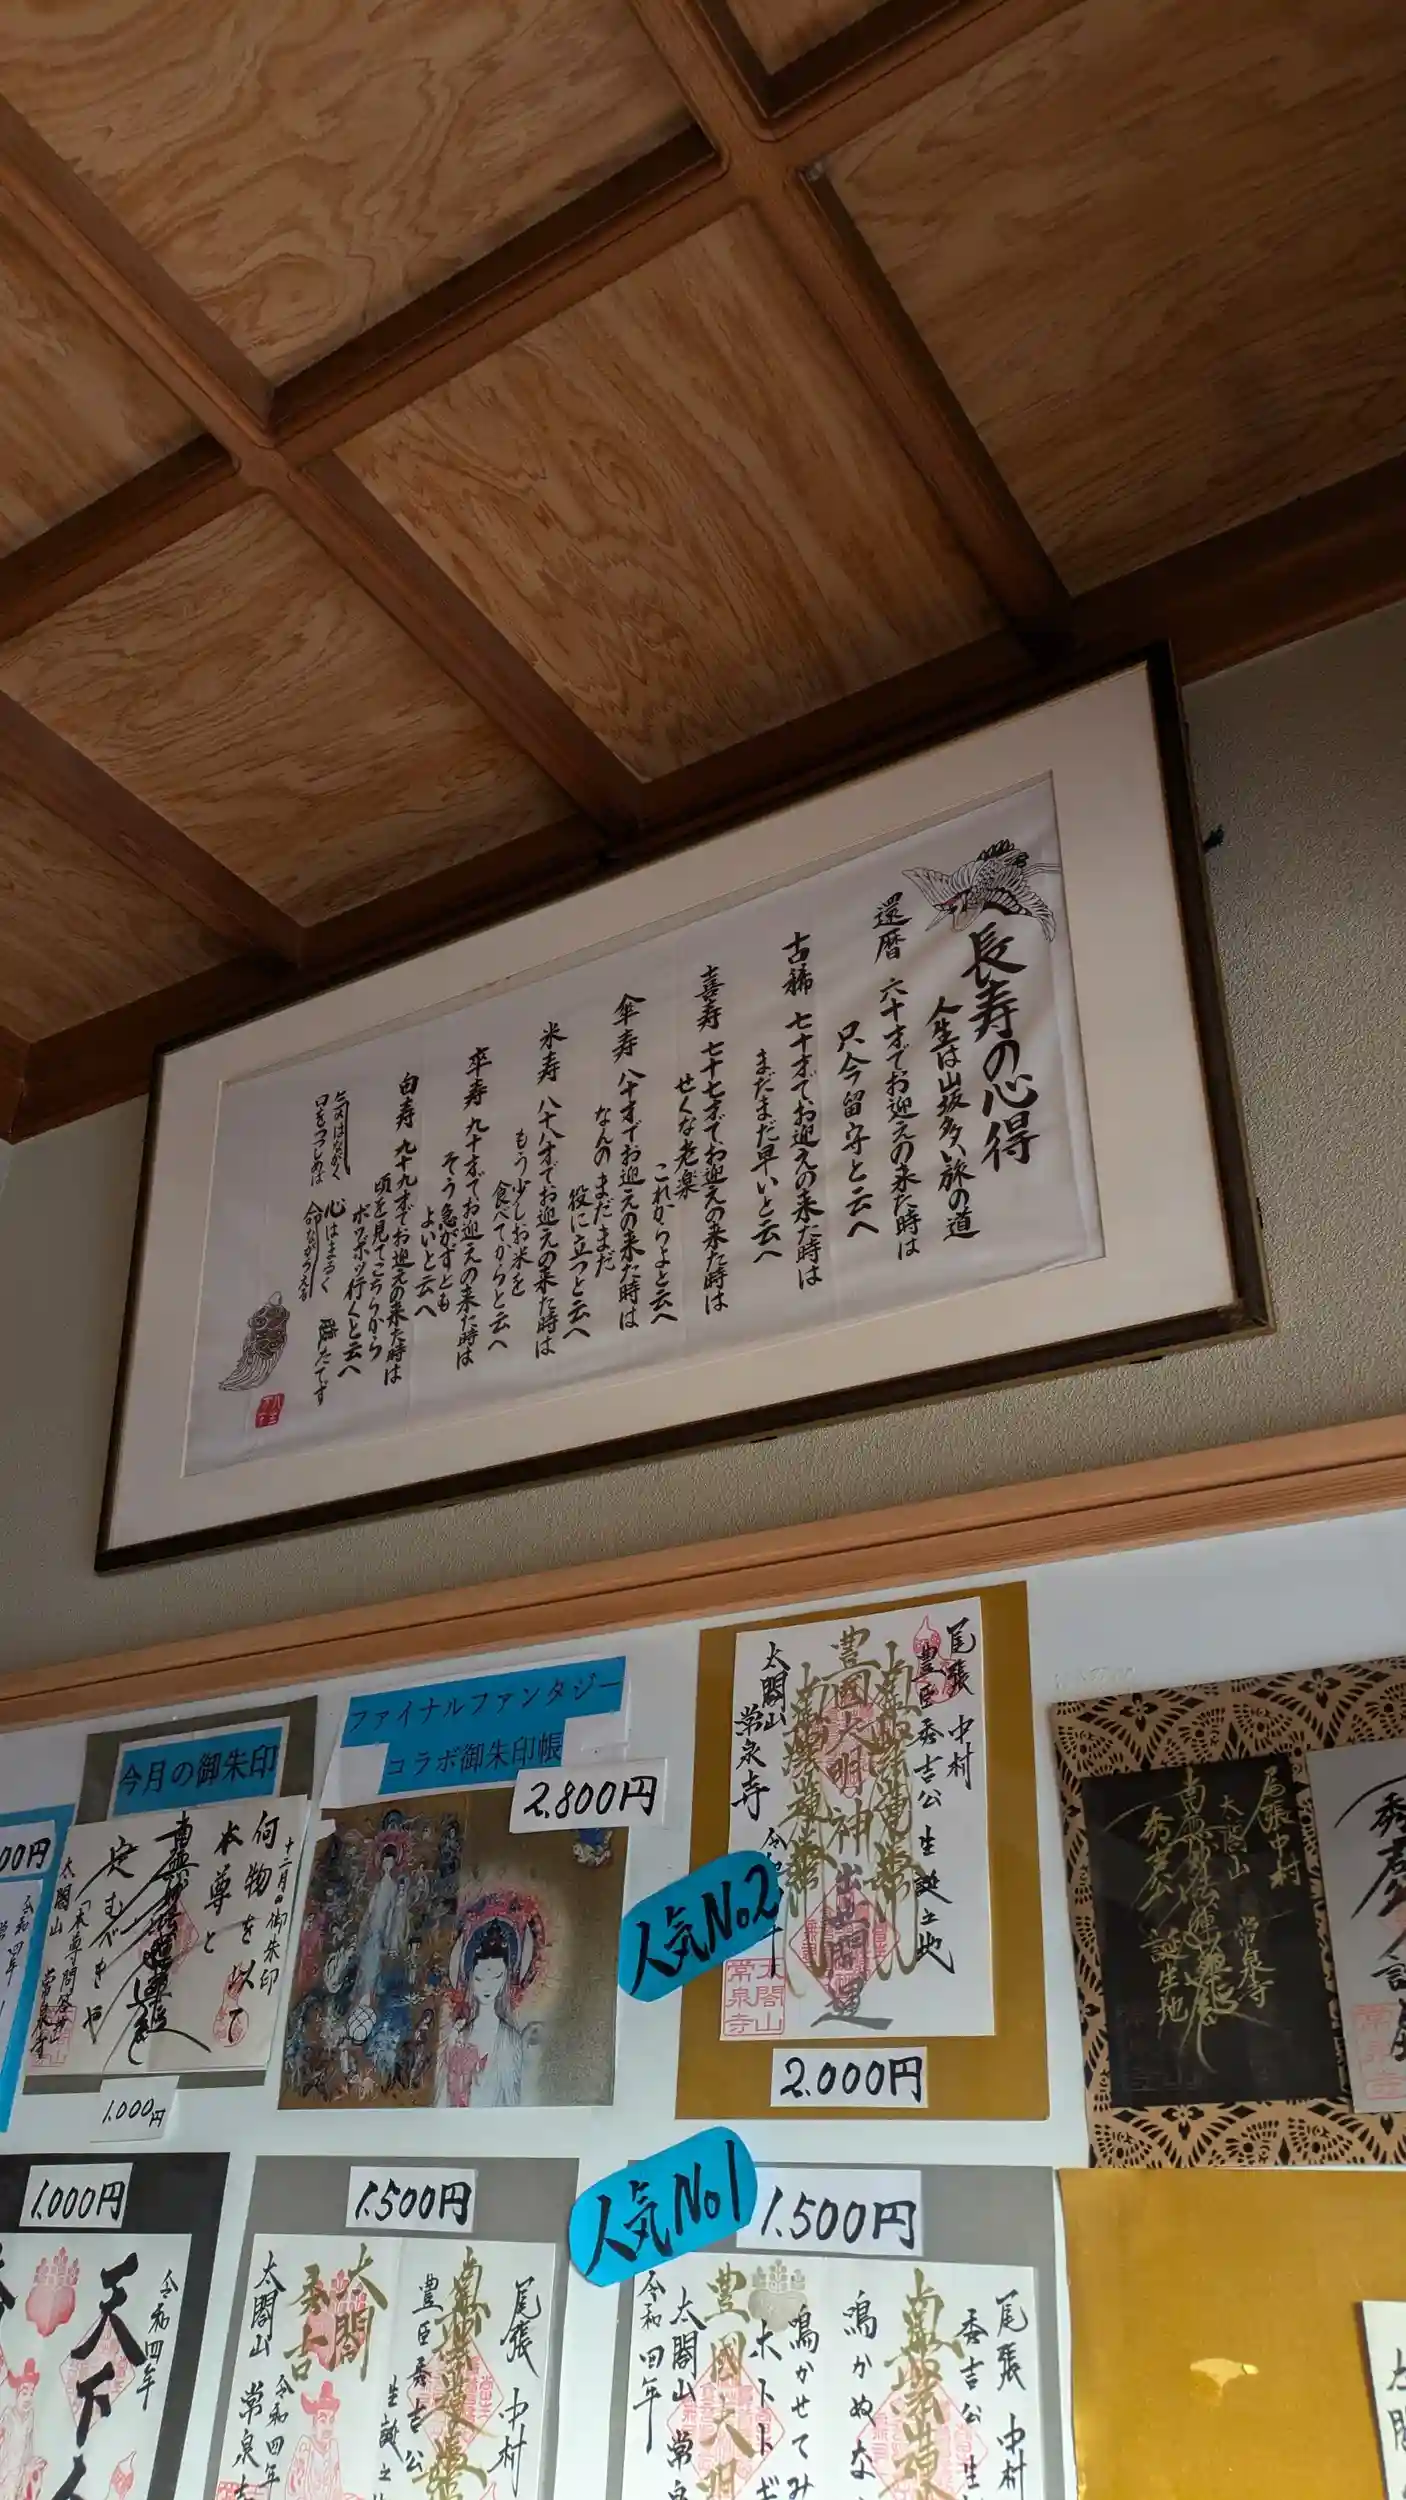 長寿の心得
人生は山坂多い旅の道
還暦 六十才でお迎えの来た時は
只今留守と云へ
古稀 七十才でお迎えの来た時は
まだまだ早いと云へ
喜寿 七十七才でお迎えの来た時は
せくな老楽
これからよと云へ
傘寿 八十才でお迎えの来た時は
なんのまだまだ
役に立つと云へ
米寿 八十八才でお迎えの来た時は
もう少しお米を
食べてからと云へ
卒寿 九十才でお迎えの来た時は
そう急がずとも
よいと云へ
白寿 九十九才でお迎えの来た時は
頃を見てこちらから
ボツボツ行くと云へ
気はながく 心はまるく 腹たてず
口をつつしめば 命ながらえる
00円
今月の御朱印
十二月の御朱印
何物を以て
本尊と
定むべきや
「本尊問答抄」
太閤山 常泉寺
1.000円
ファイナルファンタジー
コラボ御朱印帳
2.800円
尾張 中村
豊臣秀吉公 生誕之地
豊國大明神 出世開運
太閤山
常泉寺
太閤山
常泉寺
人気No2
2.000円
尾張中村
太閤山 常泉寺
南無妙法蓮華経
秀吉公 誕生地
1.000円
令和四年
天下
1.500円
尾張 中村
豊臣秀吉公
太閤
秀吉
令和四年
太閤山 常泉
人気No1
1.500円
尾張 中村
秀吉公 生
鳴かぬな
鳴かせてみ
ホトトギ
豊國大明
太閤山 常泉
令和四年